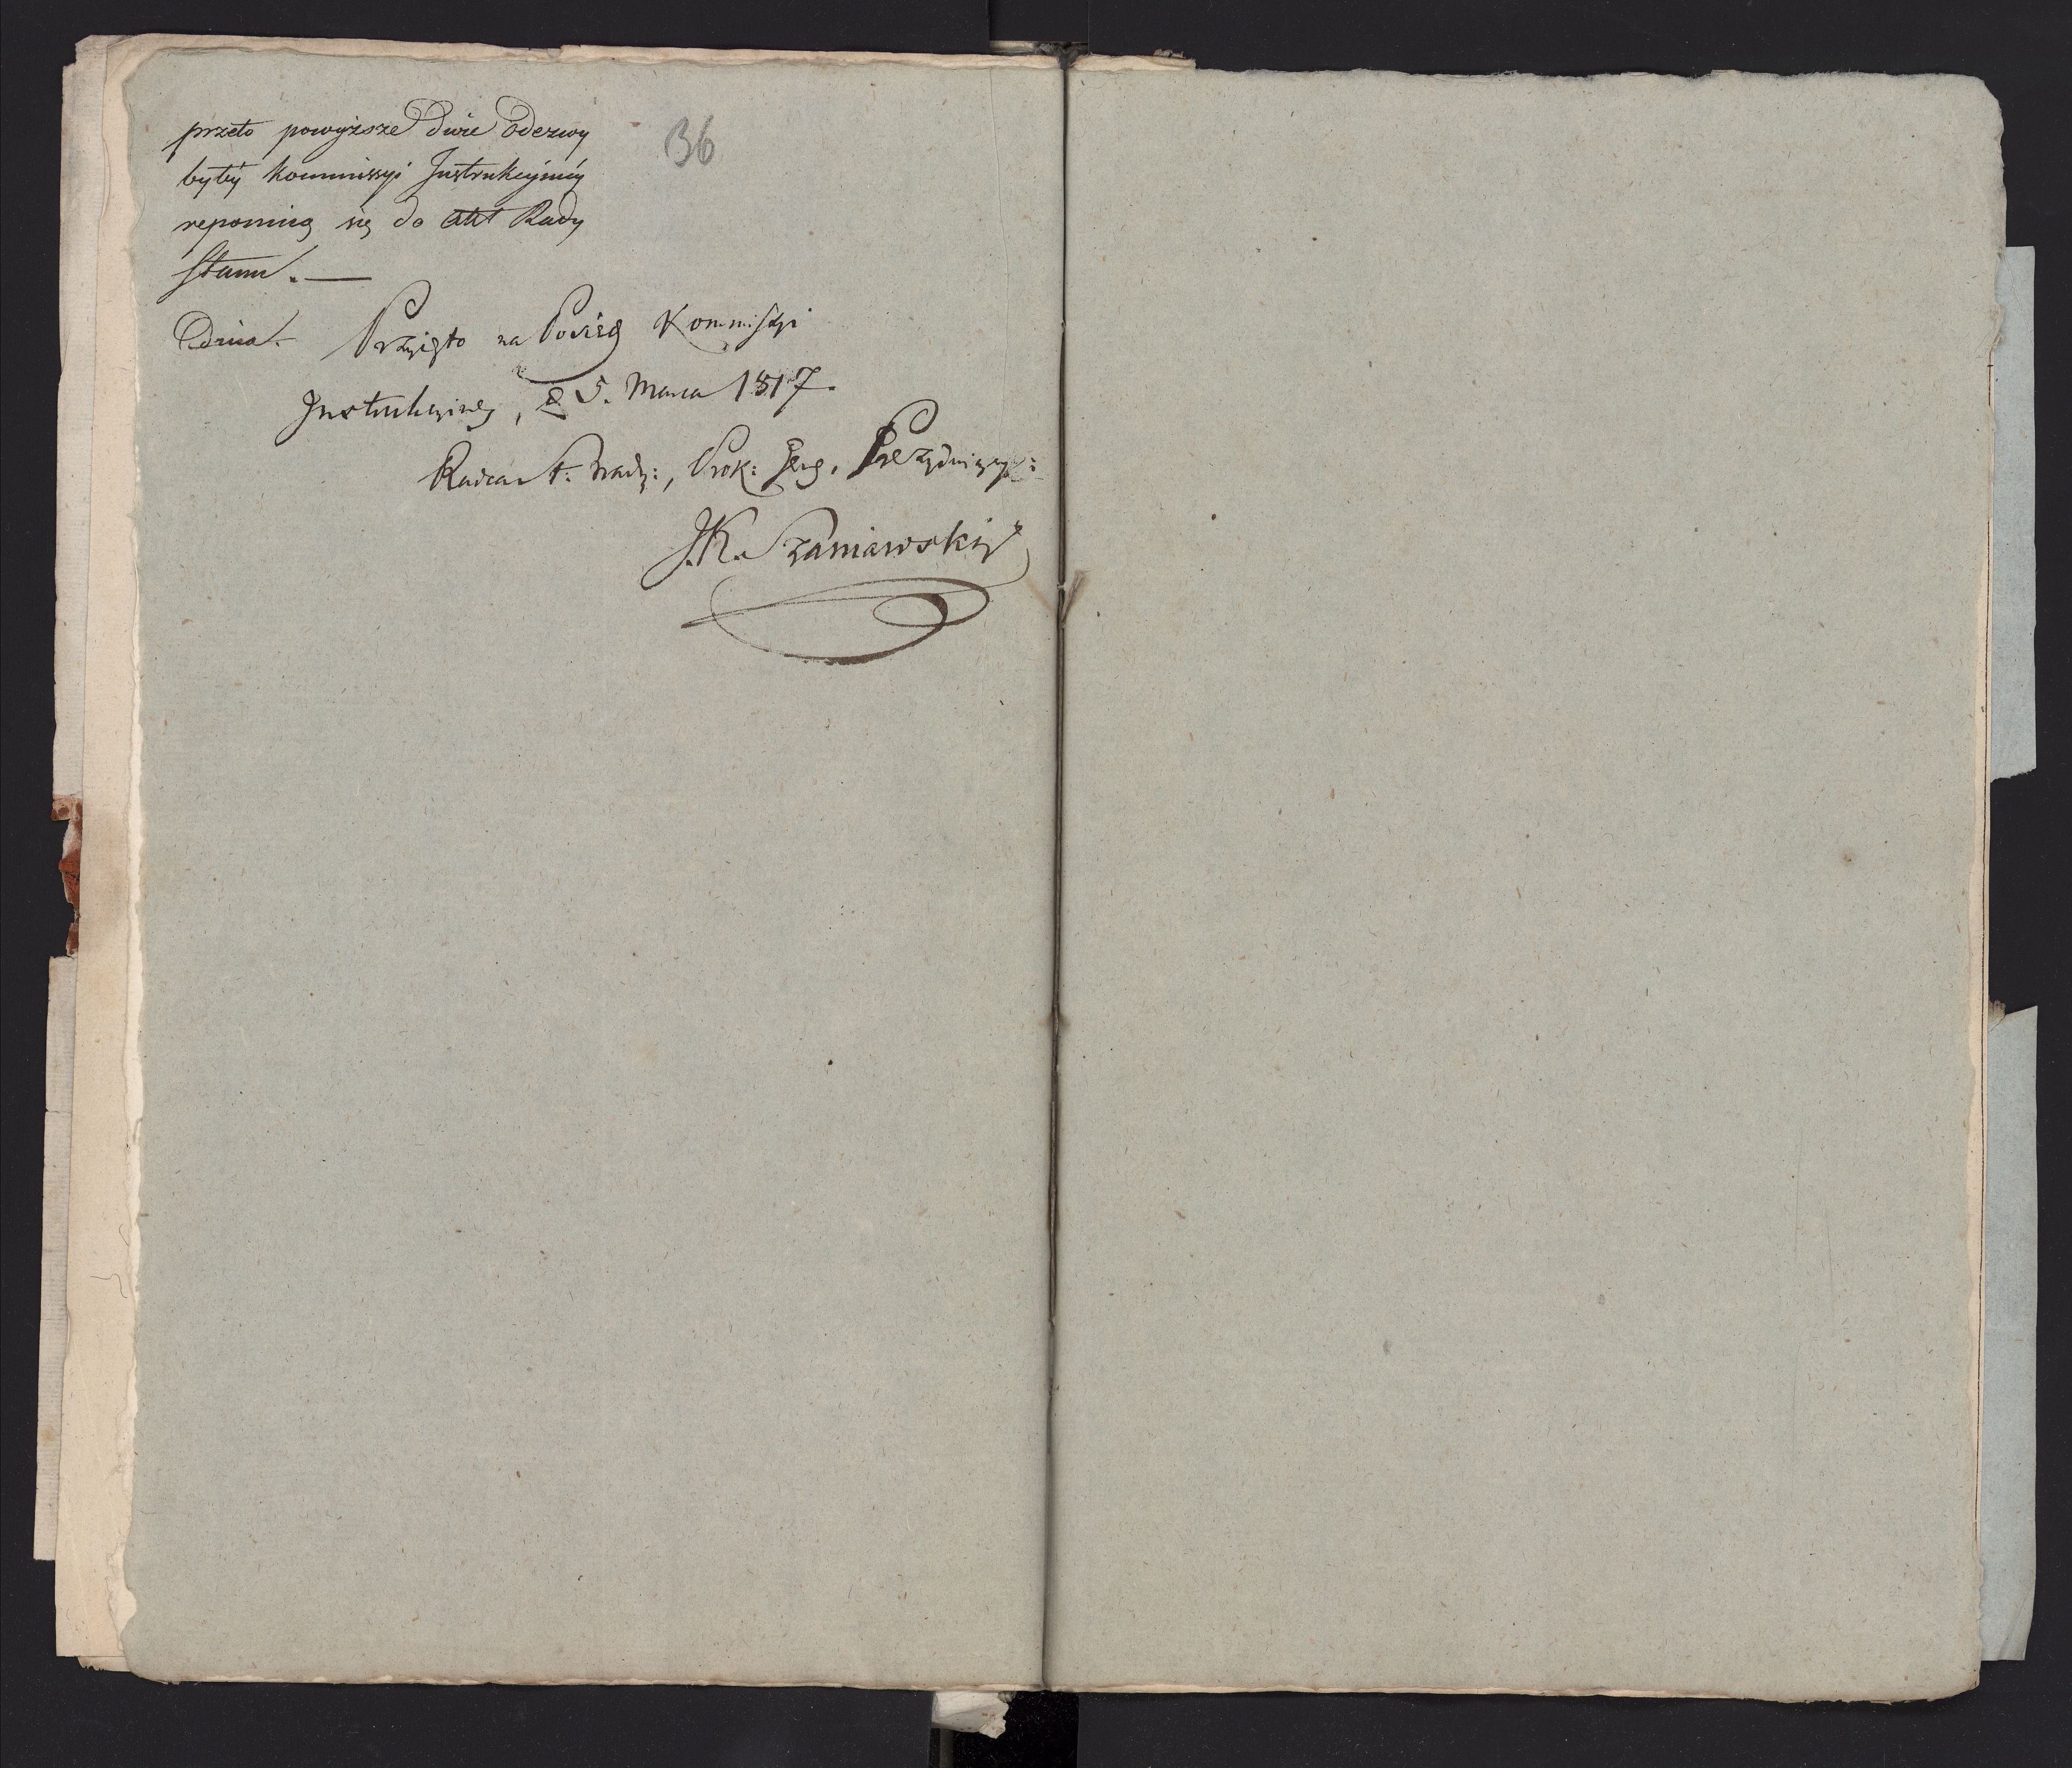 przeto powyższe dwie odezwy
36
byłéj Kommissyi Instrukcyinéy
reponuią się do Akt Rady
Stanu. —
Dnia. Przyięto na Posiedz Kommissyi
Instrukcyiney, d 5. Marca 1817.
Radca St: Nadz:, Prok: Jene,
J.K. Szaniawski